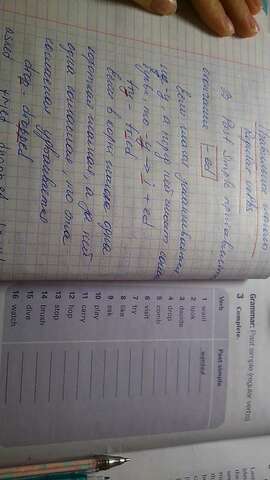 Правильные глаголы
Regular verbs
В Past Simple прибавляем
окончание -ed
Если глагол заканчивается
на -y, а перед ней стоит согл.
буква, то -y → i + ed
try - tried
Если в корне слова одна
краткая гласная, а за ней
одна согласная, то она
согласная удваивается
drop - dropped
Grammar: Past simple (regular verbs)
3 Complete.
Verb Past simple
1 want wanted
2 look
3 dance
4 drop
5 comb
6 visit
7 try
8 like
9 ask
10 play
11 carry
12 hop
13 stop
14 brush
15 dive
16 watch